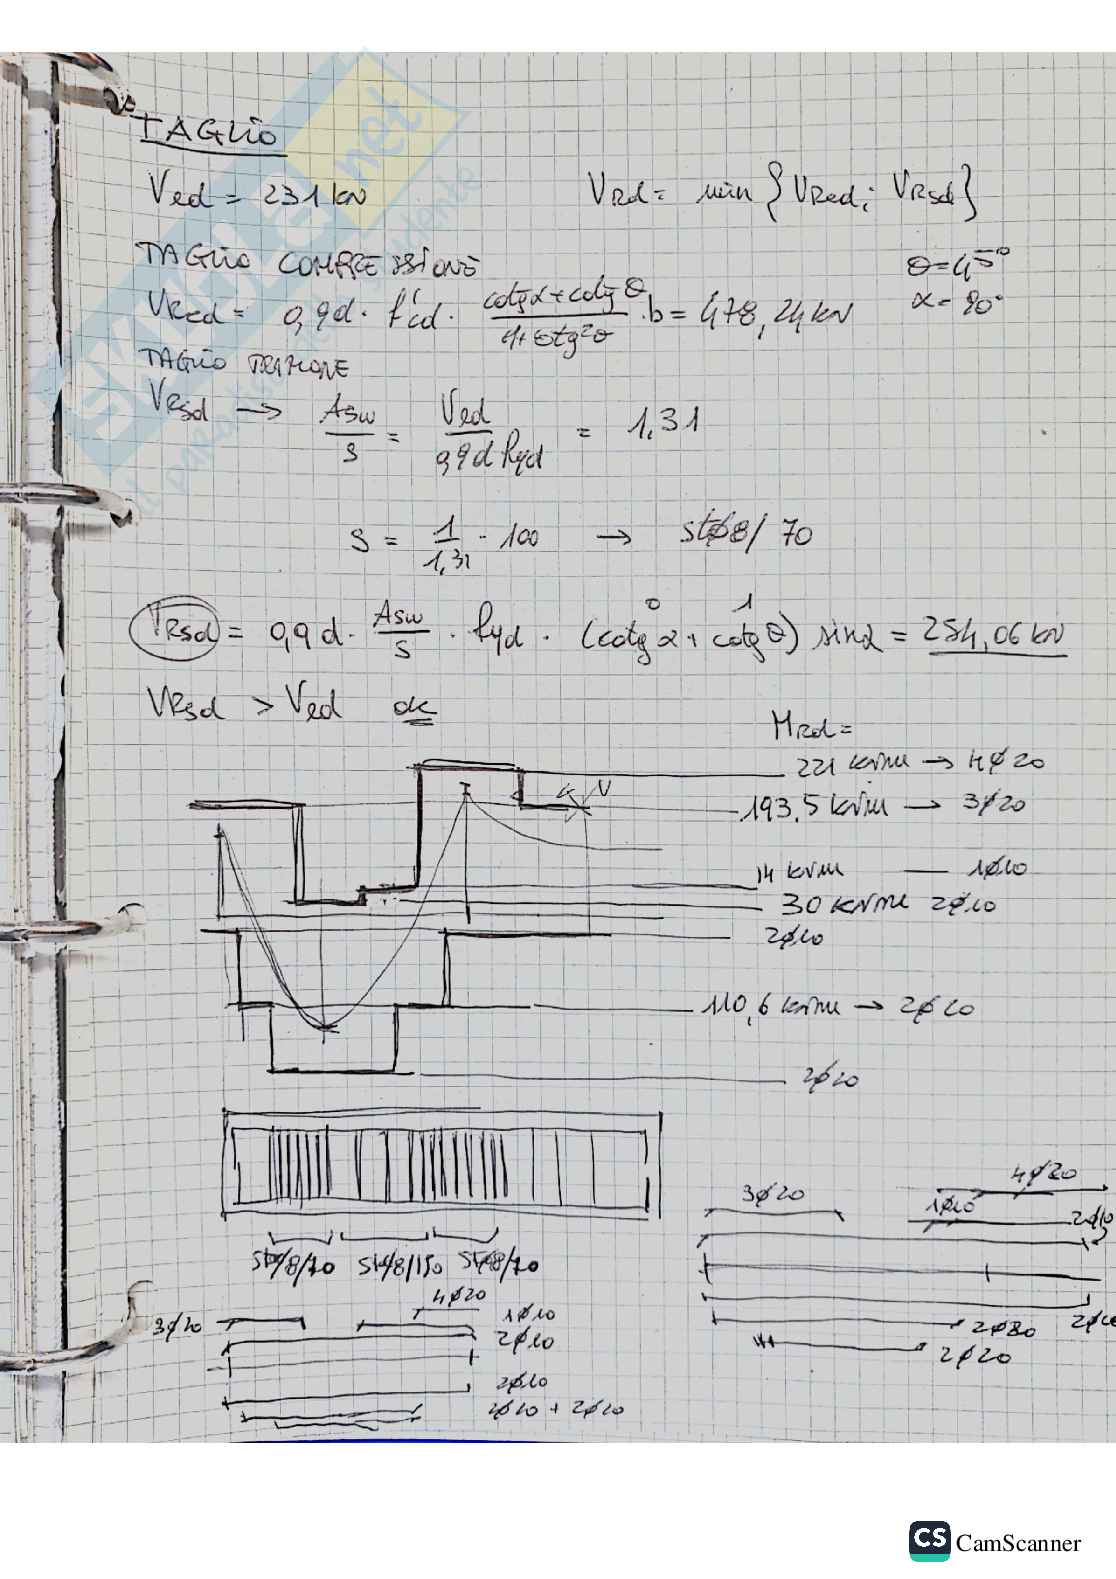 TAGLIO
Ved = 231 kN
VRd = min {VRcd; VRsd}
TAGLIO COMPRESSIONE
θ=45°
α=90°
VRcd = 0,9d · f'cd · (cotgα + cotgθ)/(1+cotg²θ) · b = 478,24 kN
TAGLIO TRAZIONE
VRsd → Asw/s = Ved/(0,9d fyd) = 1,31
s = 1/1,31 · 100 → stø8/70
0 1
VRsd = 0,9d · Asw/s · fyd · (cotgα + cotgθ) sinα = 254,06 kN
VRsd > Ved ok
MRd =
221 kNm → 4ø20
193,5 kNm → 3ø20
14 kNm — 1ø10
30 kNm 2ø10
2ø10
110,6 kNm → 2ø20
2ø20
stø8/70 stø8/150 stø8/70
3ø20
4ø20
1ø10
2ø10
2ø10
2ø20 + 2ø20
3ø20
4ø20
1ø10
2ø10
2ø20
2ø20
CS CamScanner